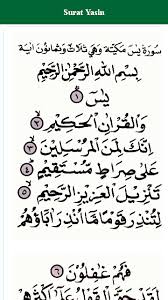 Surat Yasin
سورة يس مكية وهي ثلاث وثمانون اية
بِسْمِ اللهِ الرَّحْمٰنِ الرَّحِيْمِ
يٰسٓ ۝١
وَالْقُرْاٰنِ الْحَكِيْمِ ۝٢
اِنَّكَ لَمِنَ الْمُرْسَلِيْنَ ۝٣
عَلٰى صِرَاطٍ مُّسْتَقِيْمٍ ۝٤
تَنْزِيْلَ الْعَزِيْزِ الرَّحِيْمِ ۝٥
لِتُنْذِرَ قَوْمًا مَّا اُنْذِرَ اٰبَاؤُهُمْ
فَهُمْ غٰفِلُوْنَ ۝٦
لَقَدْ حَقَّ الْقَوْلُ عَلٰى اَكْثَرِهِمْ